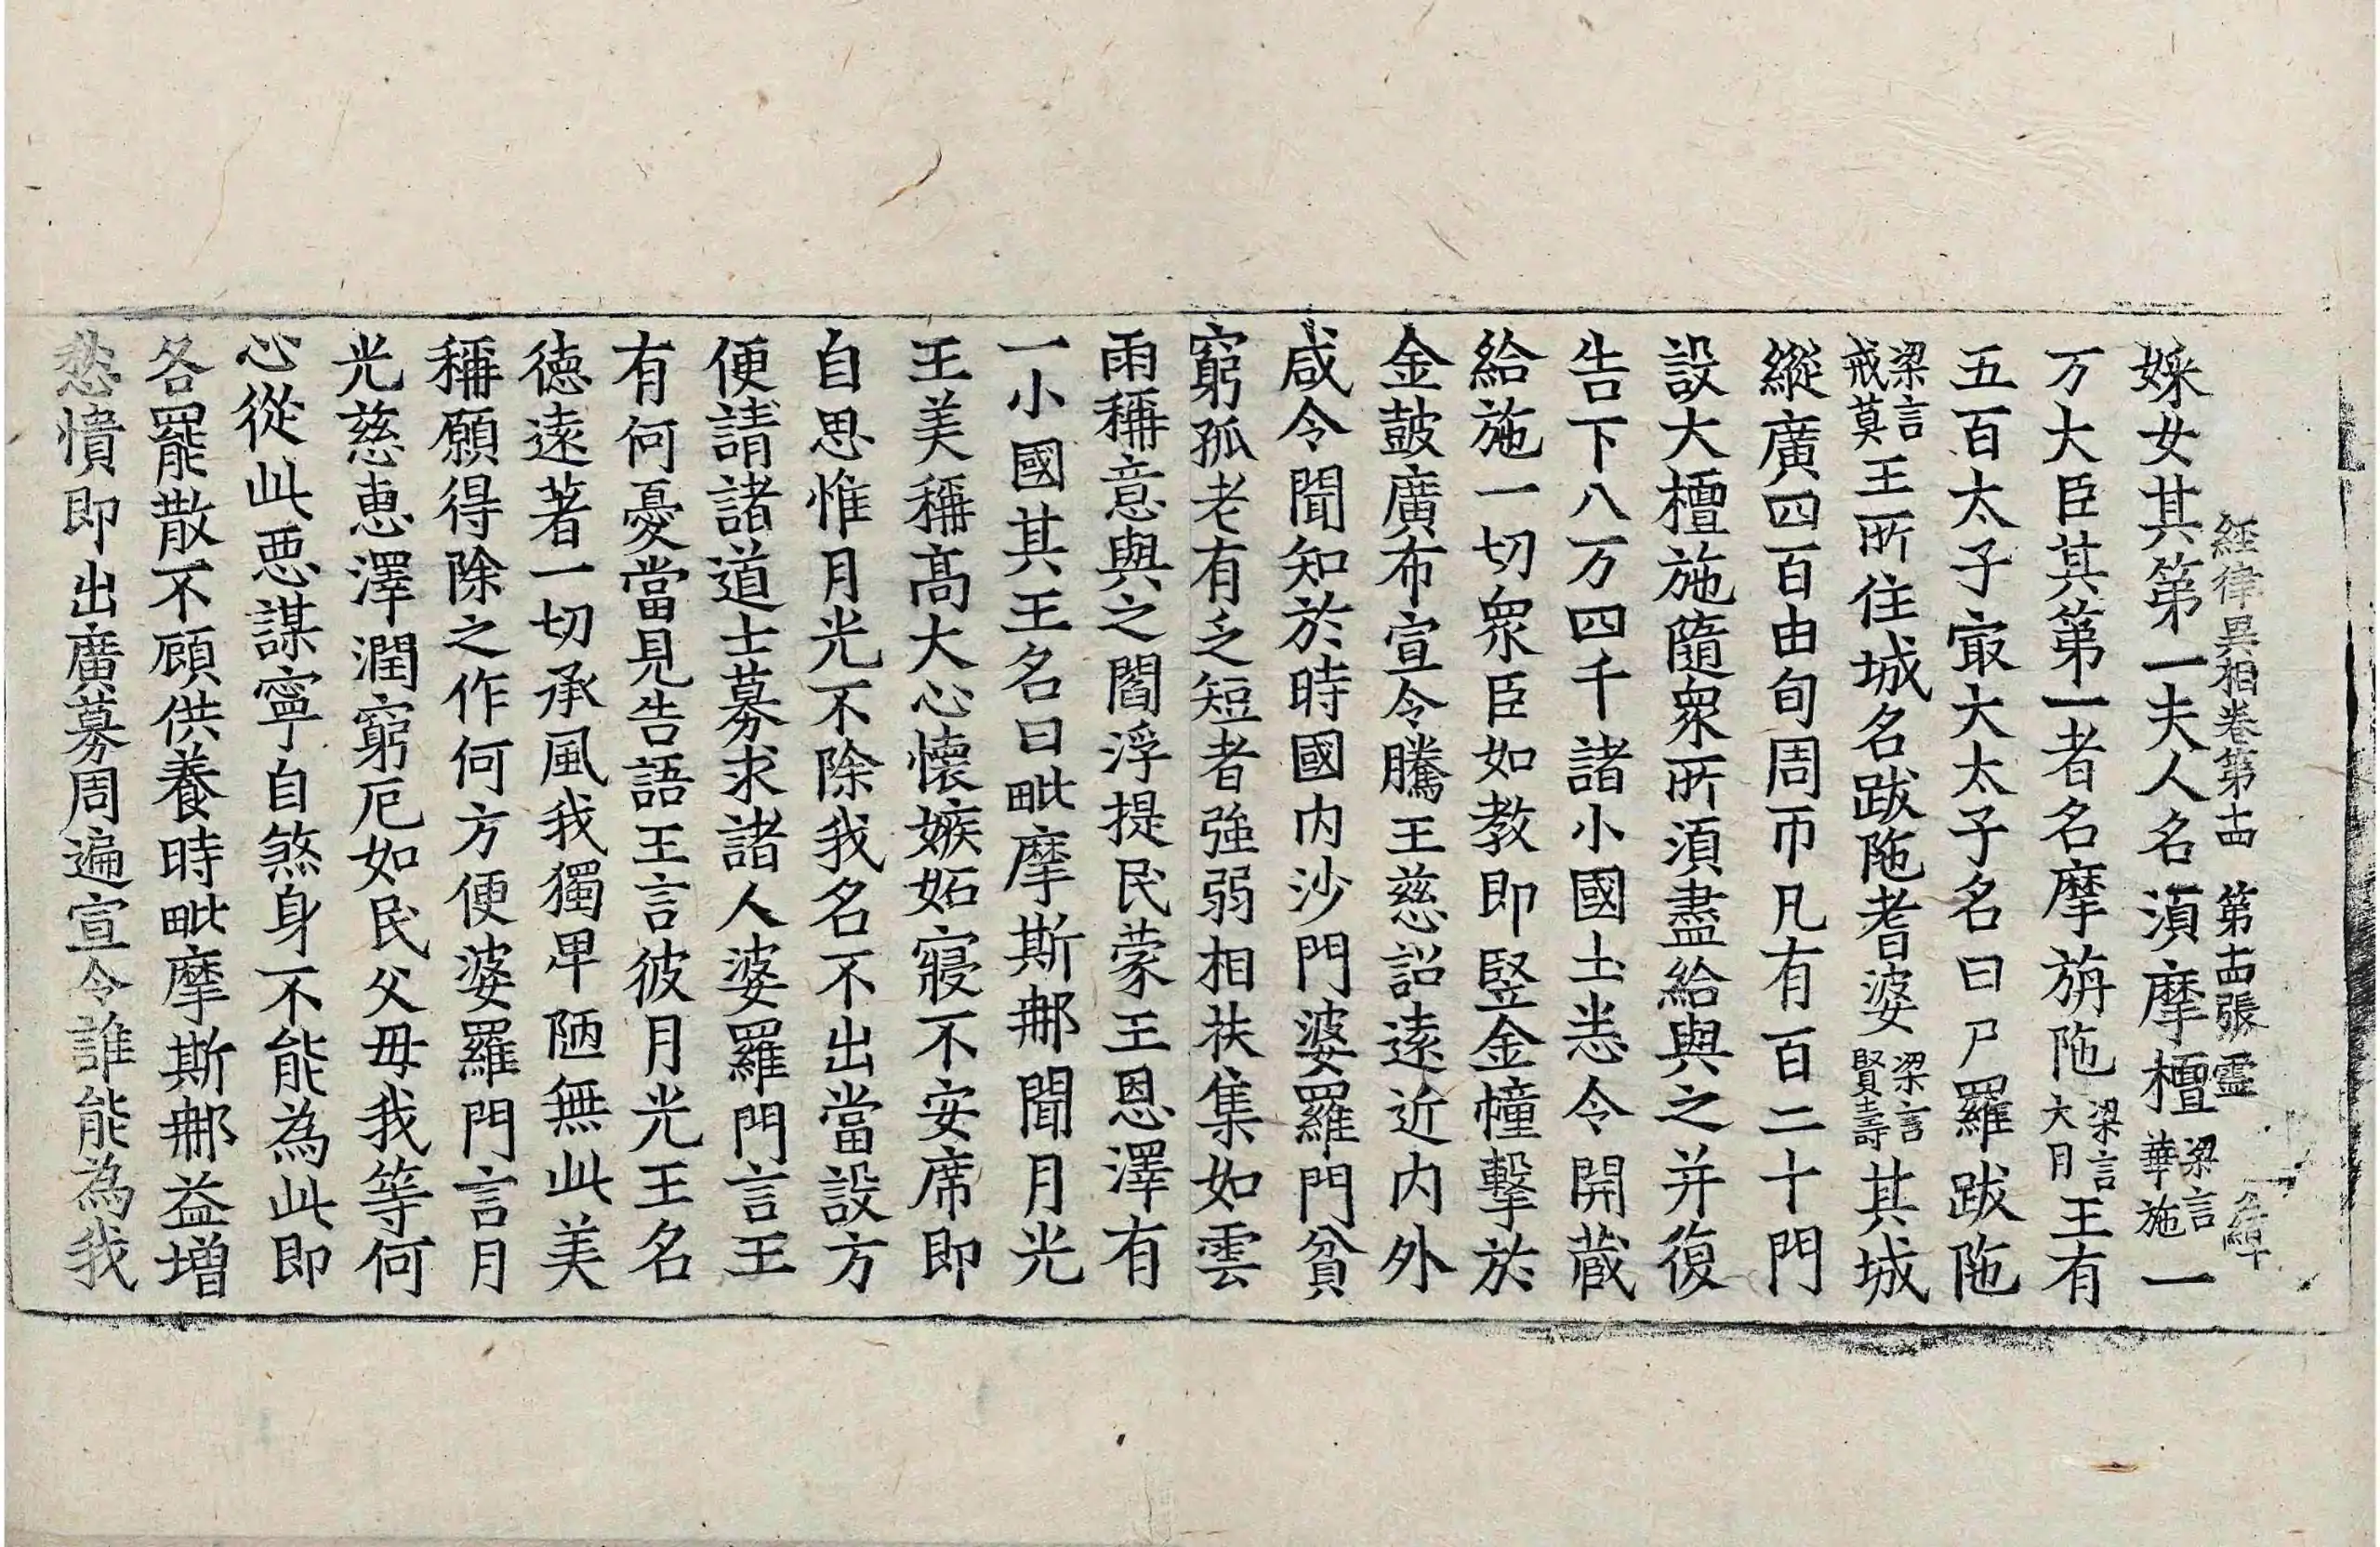 經律異相卷第十四　第十四張　靈
婇女其第一夫人名湏摩檀梁言華施一
万大臣其第一者名摩旃陁梁言大月王有
五百太子冣大太子名曰尸羅跋陁
梁言戒莫王所住城名跋陁耆婆梁言賢壽其城
縱廣四百由旬周帀凡有百二十門
設大檀施隨衆所湏盡給與之并復
告下八万四千諸小國土悉令開蔵
給施一切衆臣如教即竪金幢擊於
金皷廣布宣令騰王慈詔逺近内外
咸令聞知於時國内沙門婆羅門貧
窮孤老有乏短者強弱相扶集如雲
雨稱意與之閻浮提民蒙王恩澤有
一小國其王名曰毗摩斯那聞月光
王美稱髙大心懷嫉妬寢不安席即
自思惟月光不除我名不出當設方
便請諸道士募求諸人婆羅門言王
有何憂當見告語王言彼月光王名
德逺著一切承風我獨卑陋無此美
稱願得除之作何方便婆羅門言月
光慈恵澤潤窮厄如民父母我等何
心從此惡謀寧自煞身不能為此即
各罷散不顧供養時毗摩斯那益增
愁憒即出廣募周遍宣令誰能為我